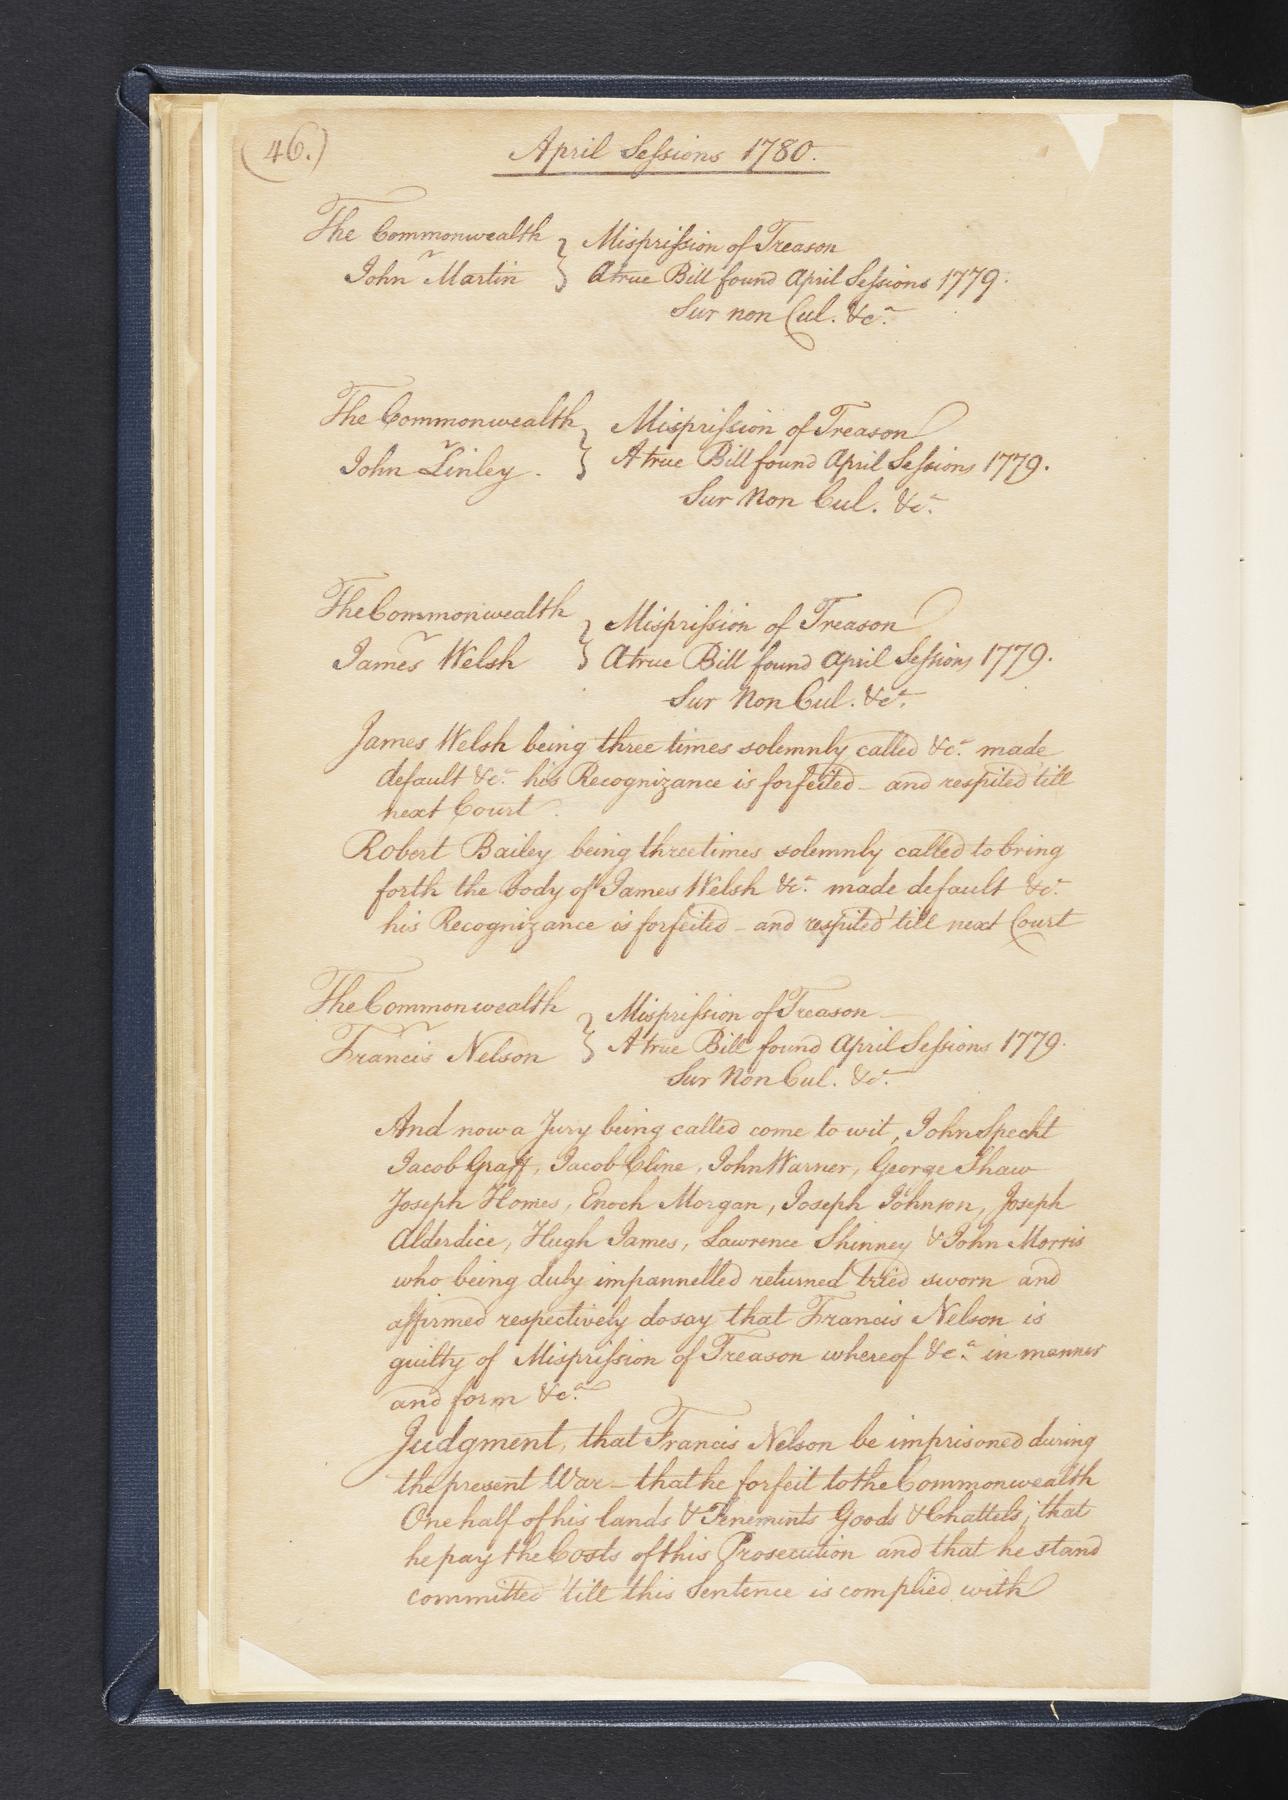 46.)
April Seſsions 1780.
The Commonwealth } Mispriſsion of Treason
v
John Martin } A true Bill found April Seſsions 1779.
Sur non Cul. &ca.
The Commonwealth } Mispriſsion of Treason
v
John Linley. } A true Bill found April Seſsions 1779.
Sur Non Cul. &ca.
The Commonwealth } Mispriſsion of Treason
v
James Welsh } A true Bill found April Seſsions 1779.
Sur Non Cul. &ca.
James Welsh being three times solemnly called &ca. made
default &ca. his Recognizance is forfeited – and respited till
next Court.
Robert Bailey being three times solemnly called to bring
forth the Body of James Welsh &ca. made default &ca.
his Recognizance is forfeited – and respited 'till next Court
The Commonwealth } Mispriſsion of Treason
v
Francis Nelson } A true Bill found April Seſsions 1779.
Sur Non Cul. &ca.
And now a Jury being called come to wit, John Specht
Jacob Graff, Jacob Cline, John Warner, George Shaw
Joseph Homes, Enoch Morgan, Joseph Johnson, Joseph
Alderdice, Hugh James, Lawrence Shinney & John Morris
who being duly impannelled returned tried sworn and
affirmed respectively do say that Francis Nelson is
guilty of Mispriſsion of Treason whereof &ca. in manner
and form &ca.
Judgment, that Francis Nelson be imprisoned during
the present War – that he forfeit to the Commonwealth
One half of his lands & Tenements Goods & Chattels, that
he pay the Costs of this Prosecution and that he stand
committed 'till this Sentence is complied with